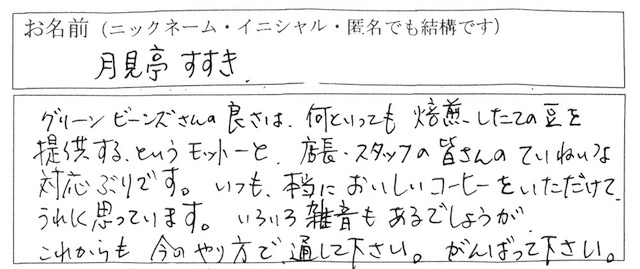 お名前（ニックネーム・イニシャル・匿名でも結構です）
月見亭 すすき
グリーンビーンズさんの良さは、何といっても 焙煎したての豆を
提供する、というモットーと、店長・スタッフの皆さんのていねいな
対応ぶりです。いつも、本当においしいコーヒーをいただけて、
うれしく思っています。いろいろ雑音もあるでしょうが、
これからも 今のやり方で、通して下さい。がんばって下さい。